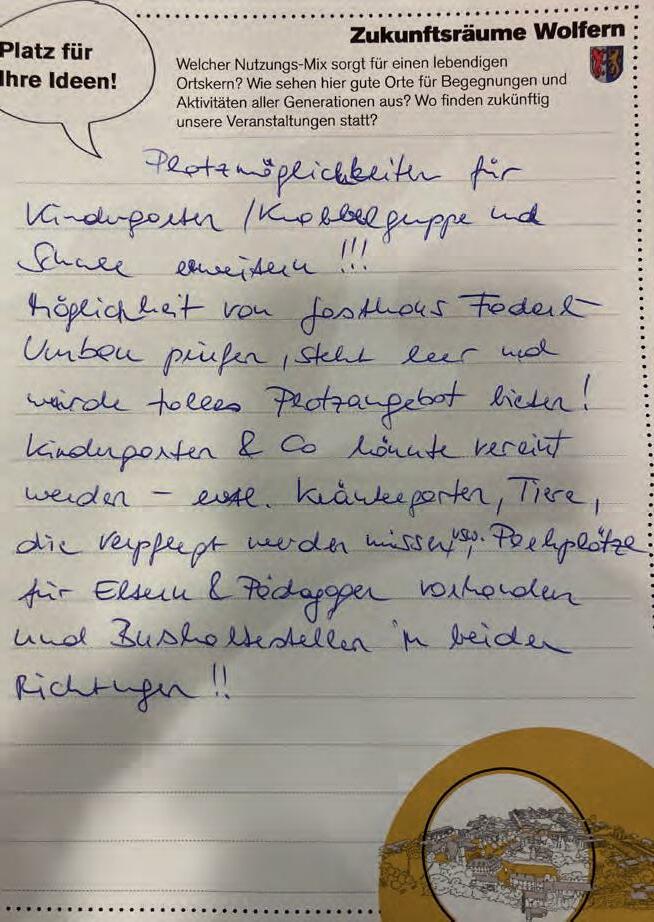 Platz für
Ihre Ideen!
Zukunftsräume Wolfern
Welcher Nutzungs-Mix sorgt für einen lebendigen
Ortskern? Wie sehen hier gute Orte für Begegnungen und
Aktivitäten aller Generationen aus? Wo finden zukünftig
unsere Veranstaltungen statt?
Platzmöglichkeiten für
Kindergarten / Krabbelgruppe und
Schule erweitern !!!
Möglichkeit von Gasthaus Faderl-
Umbau prüfen, steht leer und
würde tolles Platzangebot bieten!
Kindergarten & Co könnte vereint
werden – evtl. Kräutergarten, Tiere,
die verpflegt werden müssen, usw. Parkplätze
für Eltern & Pädagogen vorhanden
und Bushaltestellen in beiden
Richtungen !!